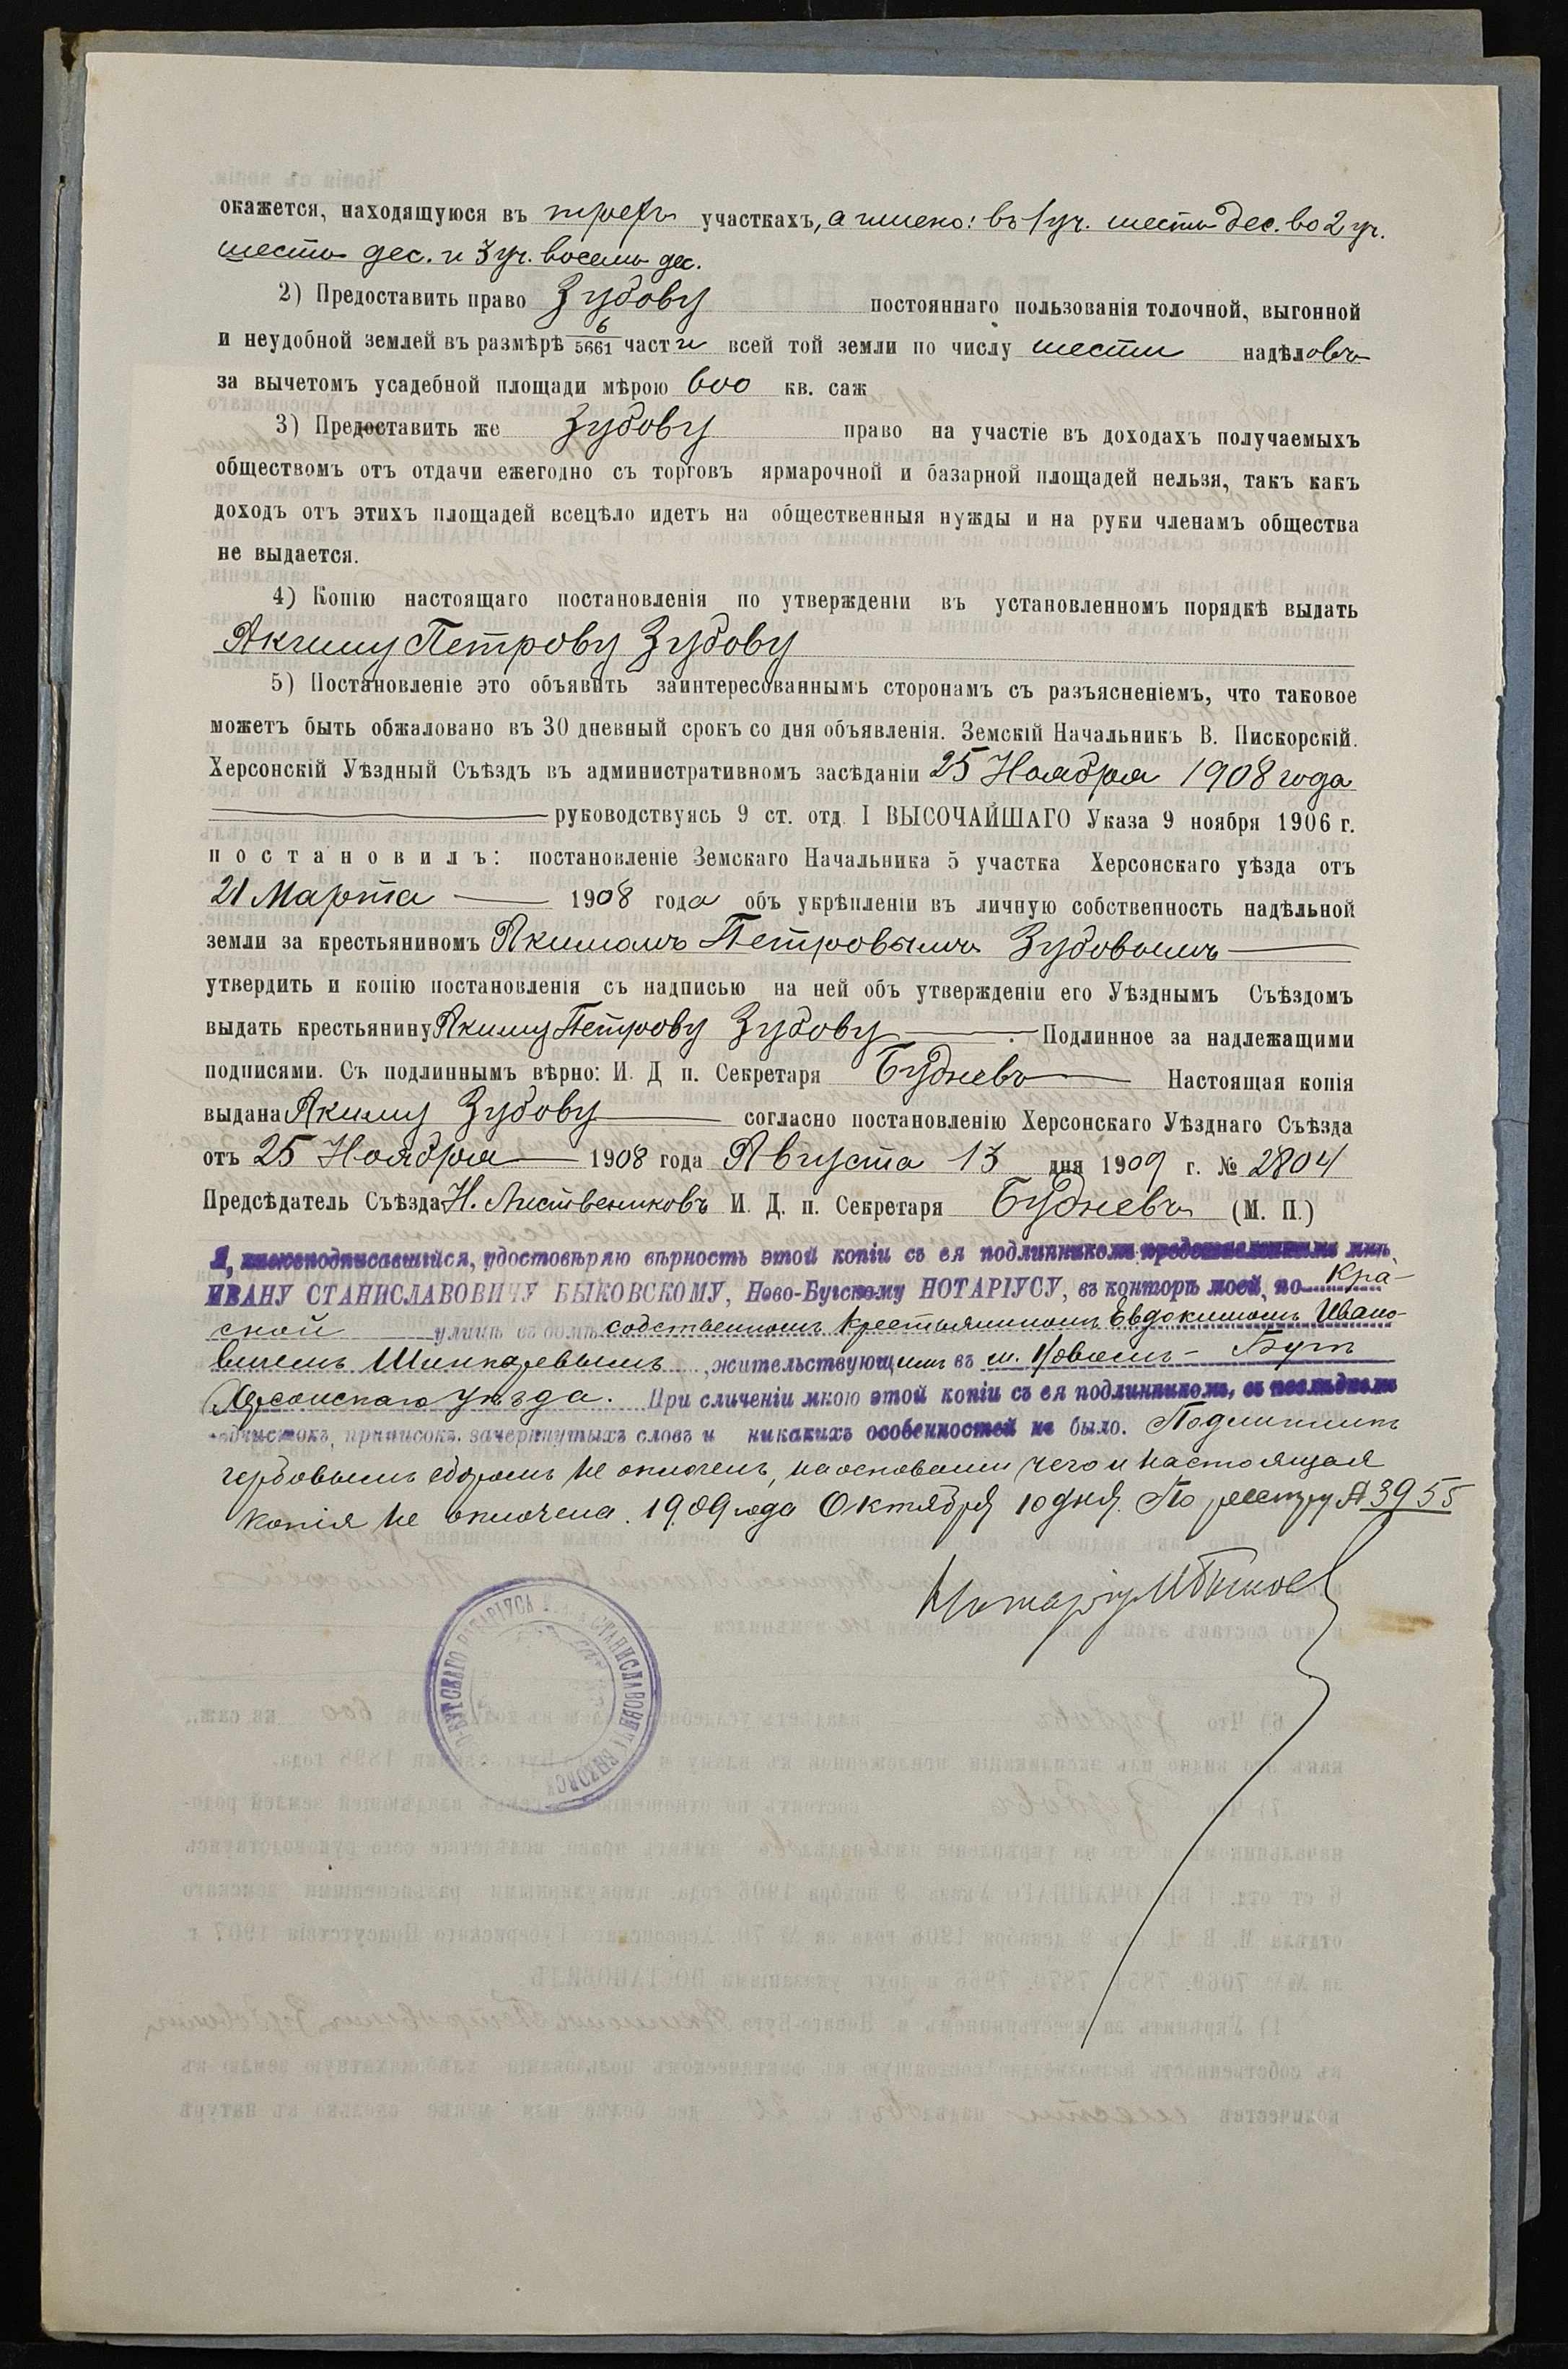 окажется, находящуюся въ трехъ участкахъ, а именно: въ 1 уч. шесть дес. во 2 уч.
шесть дес. и 3 уч. восемь дес.
2) Предоставить право Зубову постояннаго пользованія толочной, выгонной
и неудобной землей въ размѣрѣ 6/5661 части всей той земли по числу шести надѣловъ
за вычетомъ усадебной площади мѣрою 600 кв. саж
3) Предоставить же Зубову право на участіе въ доходахъ получаемыхъ
обществомъ отъ отдачи ежегодно съ торговъ ярмарочной и базарной площадей нельзя, такъ какъ
доходъ отъ этихъ площадей всецѣло идетъ на общественныя нужды и на руки членамъ общества
не выдается.
4) Копію настоящаго постановленія по утвержденіи въ установленномъ порядкѣ выдать
Акиму Петрову Зубову
5) Постановленіе это объявить заинтересованнымъ сторонамъ съ разъясненіемъ, что таковое
можетъ быть обжаловано въ 30 дневный срокъ со дня объявленія. Земскій Начальникъ В. Пискорскій.
Херсонскій Уѣздный Съѣздъ въ административномъ засѣданіи 25 Ноября 1908 года
руководствуясь 9 ст. отд. I ВЫСОЧАЙШАГО Указа 9 ноября 1906 г.
постановилъ: постановленіе Земскаго Начальника 5 участка Херсонскаго уѣзда отъ
21 Марта 1908 года объ укрѣпленіи въ личную собственность надѣльной
земли за крестьяниномъ Акимомъ Петровымъ Зубовымъ
утвердить и копію постановленія съ надписью на ней объ утвержденіи его Уѣзднымъ Съѣздомъ
выдать крестьянину Акиму Петрову Зубову. Подлинное за надлежащими
подписями. Съ подлиннымъ вѣрно: И. Д п. Секретаря Будневъ Настоящая копія
выдана Акиму Зубову согласно постановленію Херсонскаго Уѣзднаго Съѣзда
отъ 25 Ноября 1908 года Августа 13 дня 1909 г. № 2804
Предсѣдатель Съѣзда Н. Листвениковъ И. Д. п. Секретаря Будневъ (М. П.)
Я, нижеподписавшійся, удостовѣряю вѣрность этой копіи съ ея подлинникомъ представленнымъ мнѣ,
ИВАНУ СТАНИСЛАВОВИЧУ БЫКОВСКОМУ, Ново-Бугскому НОТАРІУСУ, въ конторѣ моей, по Кра-
сной улицѣ въ домѣ собственномъ крестьяниномъ Евдокимомъ Ивано-
вичемъ Шинкаревымъ, жительствующимъ въ м. Новомъ-Бугѣ
Херсонскаго уѣзда. При сличеніи мною этой копіи съ ея подлинникомъ, въ послѣднемъ
подчистокъ, приписокъ, зачеркнутыхъ словъ и никакихъ особенностей не было. Подлинникъ
гербовымъ сборомъ не оплоченъ, на основаніи чего и настоящая
копія не оплочена. 1909 года Октября 10 дня. По реестру № 3955
Нотаріусъ И Быковс
НОТАРІУСА СТАНИСЛАВОВИЧА БЫКОВСК